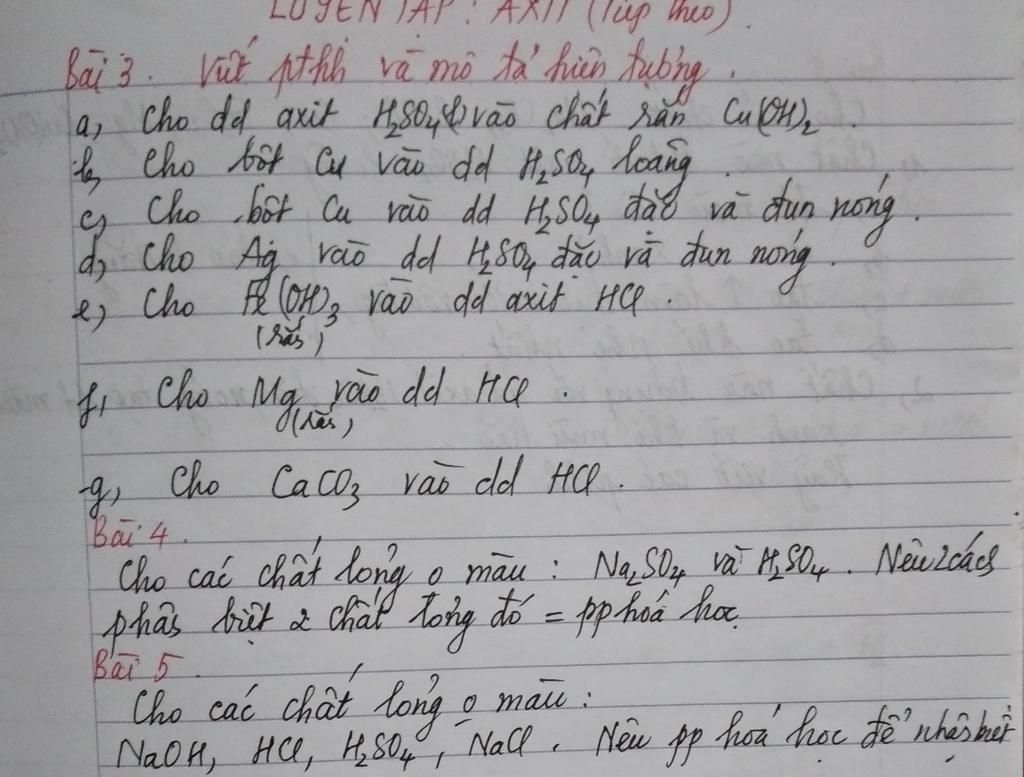 LUYỆN TẬP : AXIT (Tiếp theo)
Bài 3. Viết pthh và mô tả hiện tượng.
a, Cho dd axit H₂SO₄(l) vào chất rắn Cu(OH)₂.
b, Cho bột Cu vào dd H₂SO₄ loãng.
c, Cho bột Cu vào dd H₂SO₄ đặc và đun nóng.
d, Cho Ag vào dd H₂SO₄ đặc và đun nóng.
e, Cho Fe(OH)₃ vào dd axit HCl.
(rắn)
f, Cho Mg vào dd HCl.
(rắn)
g, Cho CaCO₃ vào dd HCl.
Bài 4.
Cho các chất lỏng o màu : Na₂SO₄ và H₂SO₄. Nêu 2 cách
phân biệt 2 chất lỏng đó = pp hoá học.
Bài 5
Cho các chất lỏng o màu :
NaOH, HCl, H₂SO₄, NaCl. Nêu pp hoá học để nhận biết